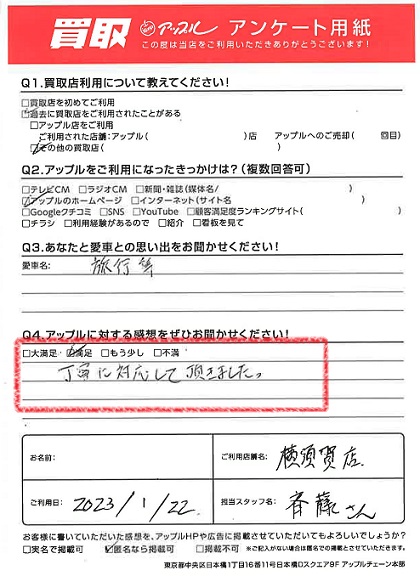 買取 アップル アンケート用紙
この度は当店をご利用いただきありがとうございます!
Q1.買取店利用について教えてください!
□買取店を初めてご利用
☑過去に買取店をご利用されたことがある
□アップル店をご利用
ご利用された店舗:アップル( )店 アップルへのご売却( 回目)
☑その他の買取店( )
Q2.アップルをご利用になったきっかけは?(複数回答可)
□テレビCM □ラジオCM □新聞・雑誌(媒体名/ )
☑アップルのホームページ □インターネット(サイト名 )
□Googleクチコミ □SNS □YouTube □顧客満足度ランキングサイト( )
□チラシ □利用経験があるので □紹介 □看板を見て
Q3.あなたと愛車との思い出をお聞かせください!
愛車名: 旅行等
Q4.アップルに対する感想をぜひお聞かせください!
□大満足 ☑満足 □もう少し □不満
丁寧に対応して頂きました。
お名前:
ご利用店舗名: 横須賀店
ご利用日: 2023/1/22
担当スタッフ名: 斉藤さん
お客様に書いていただいた感想を、アップルHPや広告に掲載させていただいてもよろしいでしょうか?
□実名で掲載可 ☑匿名なら掲載可 □掲載不可 ※ご記入がない場合は匿名での掲載とさせていただきます。
東京都中央区日本橋1丁目16番11号日本橋Dスクエア9F アップルチェーン本部